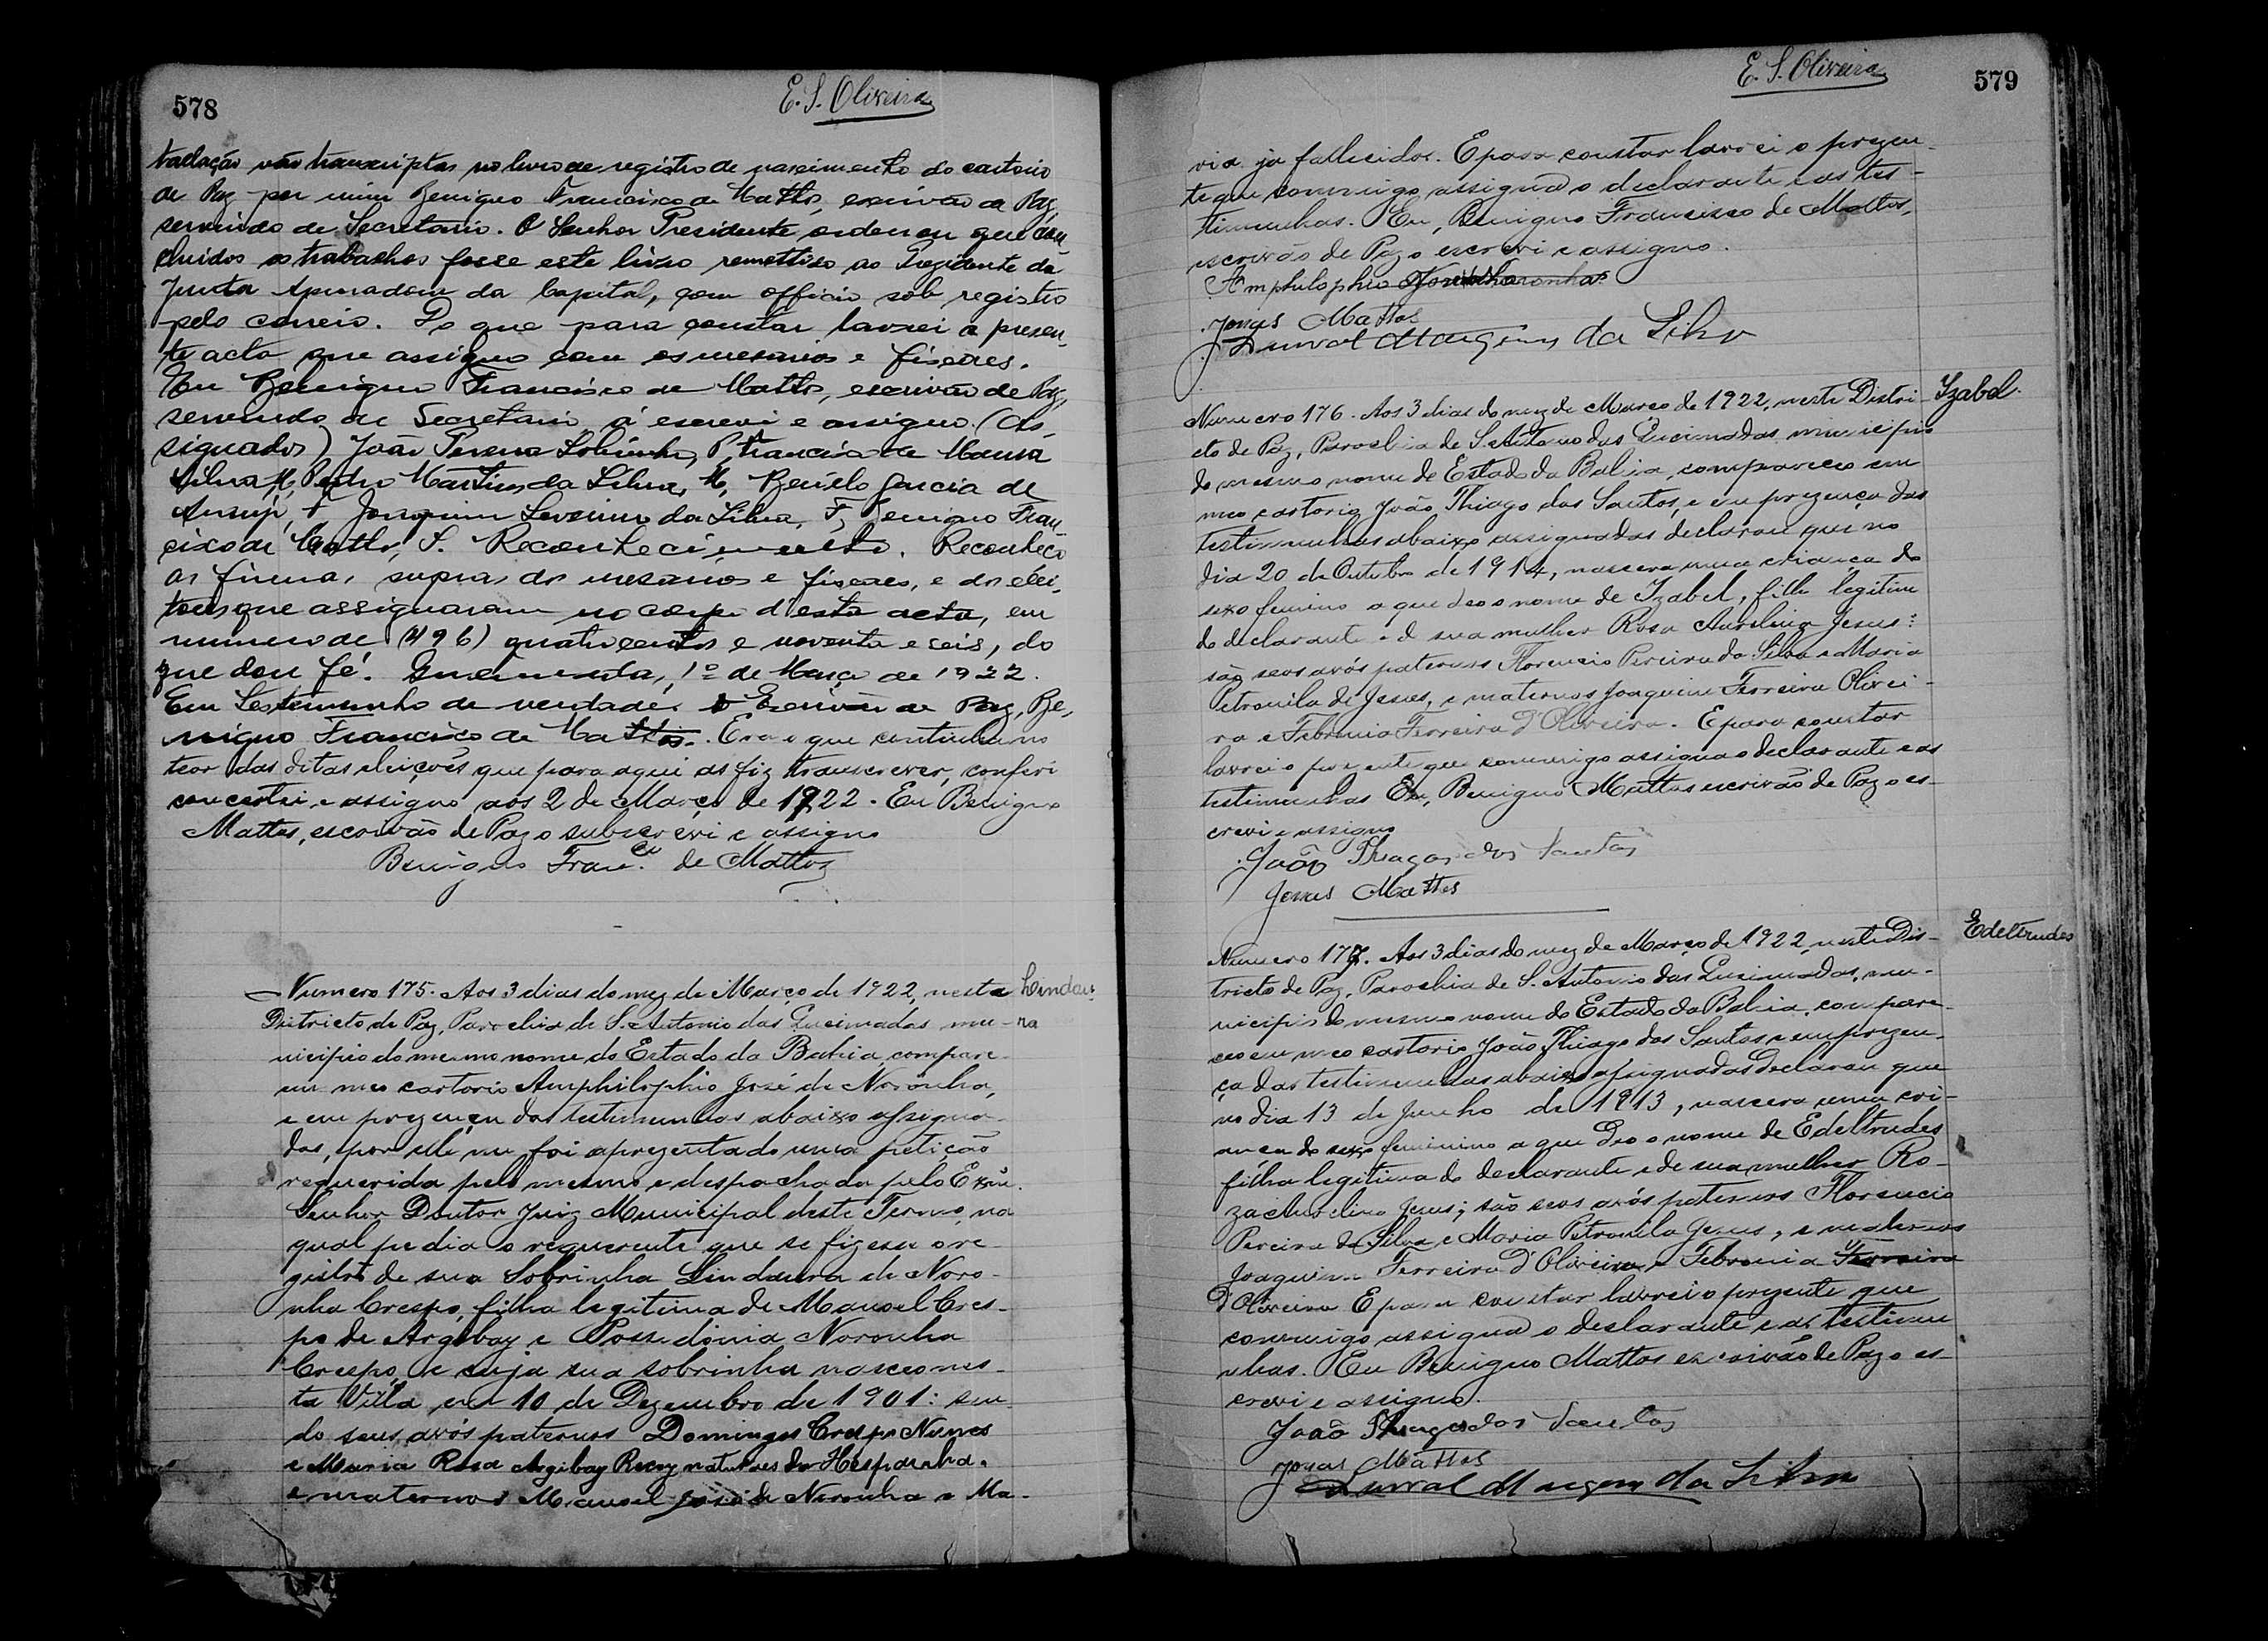 578
E. S. Oliveira
tallação vão transcriptas no livro de registro de nascimento do cartorio
de Paz por mim Benigno Francisco de Mattos, escrivão de Paz,
servindo de Secretario. O Senhor Presidente ordenou que con
cluidos os trabalhos fosse este livro remettido ao Prezidente da
Junta Apuradora da Capital, com officio sob registro
pelo correio. Do que para constar lavrei a presen
te acta que assigno com os mesarios e fiscaes.
Eu Benigno Francisco de Mattos, escrivão de Paz,
servindo de Secretario á escrevi e assigno. (As
signados) João Pereira Sobrinho, P, Francisco de
Silva M, Pedro Martins da Silva, M, Garcia de
Araujo, F, Joaquim Severino da Silva, F, Benigno Fran
cisco de Mattos, S. Reconhecimento. Reconheço
as firmas supras dos mesarios e fiscaes, e dos elei
tores que assignaram no corpo d'esta acta, em
numero de (496) quatrocentos e noventa e seis, do
que dou fé. Queimadas, 1º de Março de 1922.
Em testemunho de verdade. O Escrivão de Paz, Be
nigno Francisco de Mattos. Era o que continha no
teor das ditas eleições que para aqui as fiz transcrever, conferi
concertei e assigno aos 2 de Março de 1922. Eu Benigno
Mattos, escrivão de Paz o subscrevi e assigno
Benigno Fran.co de Mattos
Numero 175. Aos 3 dias do mez de Março de 1922, neste Lindau
Districto de Paz, Parochia de S. Antonio das Queimadas mu-ra
nicipio do mesmo nome do Estado da Bahia, compare
em meo cartorio Amphilophio José de Noronha,
e em prezença das testimunhas abaixo assigna
das, por elle me foi aprezentado uma petição
requerida pelo mesmo e despachada pelo Exm.
Senhor Doutor Juiz Municipal deste Termo, na
qual pedia o requerente que se fizesse o re
gistro de sua Sobrinha Lindaura de Noro-
nha Crespo, filha legitima de Manoel Cres-
po de Argibay e Possidonia Noronha
Crespo, e cuja sua sobrinha nasceo nes-
ta Villa em 10 de Dezembro de 1901: sen
do seus avós paternos Domingos Crespo Nunes
e Maria Rosa Argibay Recoy naturaes da Hespanha.
e maternos Manoel José de Noronha e Ma-
E. S. Oliveira
579
ria já fallecidos. E para constar lavrei o prezen-
te que commigo assigna o declarante e as tes-
timunhas. Eu, Benigno Francisco de Mattos,
escrivão de Paz o escrevi e assigno.
Amphilophio Noronha
Jonas Mattos
Durval Marques da Silva
Izabel.
Numero 176. Aos 3 dias do mez de Março de 1922, neste Distri-
cto de Paz, Parochia de S. Antonio das Queimadas, municipio
do mesmo nome do Estado da Bahia, compareceo em
meo cartorio João Thiago dos Santos, e em prezença das
testimunhas abaixo assignadas declarou que no
dia 20 de Outubro de 1914, nascera uma criança do
sexo femino a que deo o nome de Izabel, filha legitima
do declarante e de sua mulher Rosa Aurelina Jesus:
são seos avós paternos Florencio Pereira da Silva e Maria
Petronila de Jesus, e maternos Joaquim Ferreira Olivei-
ra e Febronia Ferreira D'Oliveira. E para constar
lavrei o prezente que commigo assigna o declarante e as
testimunhas Eu, Benigno Mattos escrivão de Paz o es-
crevi e assigno
João Thiago dos Santos
Jonas Mattos
Edeltrudes
Numero 177. Aos 3 dias do mez de Março de 1922, neste Dis-
tricto de Paz, Parochia de S. Antonio das Queimadas, mu-
nicipio do mesmo nome do Estado da Bahia, compare-
ceo em meo cartorio João Thiago dos Santos e em prezen-
ça das testimunhas abaixo assignadas declarou que
no dia 13 de Junho de 1913, nascera uma cri-
ança do sexo feminino a que deo o nome de Edeltrudes
filha legitima do declarante e de sua mulher Ro-
za Aurelina Jesus; são seos avós paternos Florencio
Pereira da Silva e Maria Petronila Jesus, e maternos
Joaquim Ferreira D'Oliveira e Febronia Ferreira
D'Oliveira E para constar lavrei o prezente que
commigo assigna o declarante e as testimu
nhas. Eu Benigno Mattos escrivão de Paz o es-
crevi e assigno.
João Thiago dos Santos
Jonas Mattos
Durval Marques da Silva